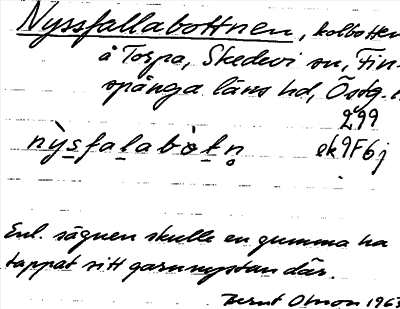 Nyssfallabottnen, kolbotten
å Torpa, Skedevi sn, Fin-
spånga läns hd, Östg.
299
nỳsfalabòtn̥ ek 9F6j
Enl. sägnen skulle en gumma ha
tappat sitt garnnystan där.
Bernt Olsson 1963